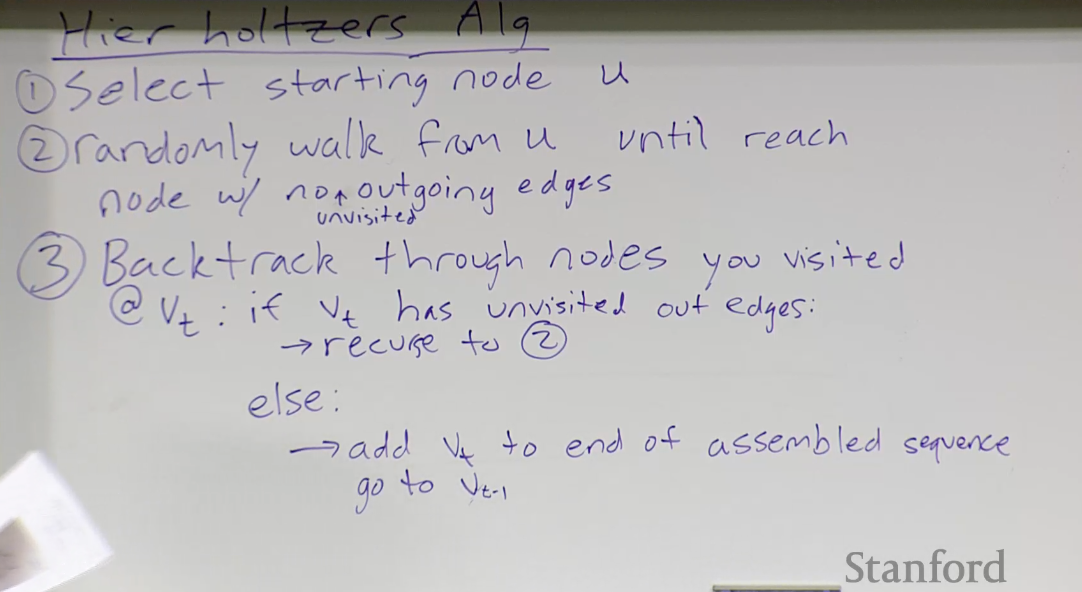 Hierholtzers Alg
① Select starting node u
② randomly walk from u until reach
node w/ no ↑ outgoing edges
unvisited
③ Backtrack through nodes you visited
@ Vt : if Vt has unvisited out edges:
→ recurse to ②
else:
→ add Vt to end of assembled sequence
go to Vt-1
Stanford